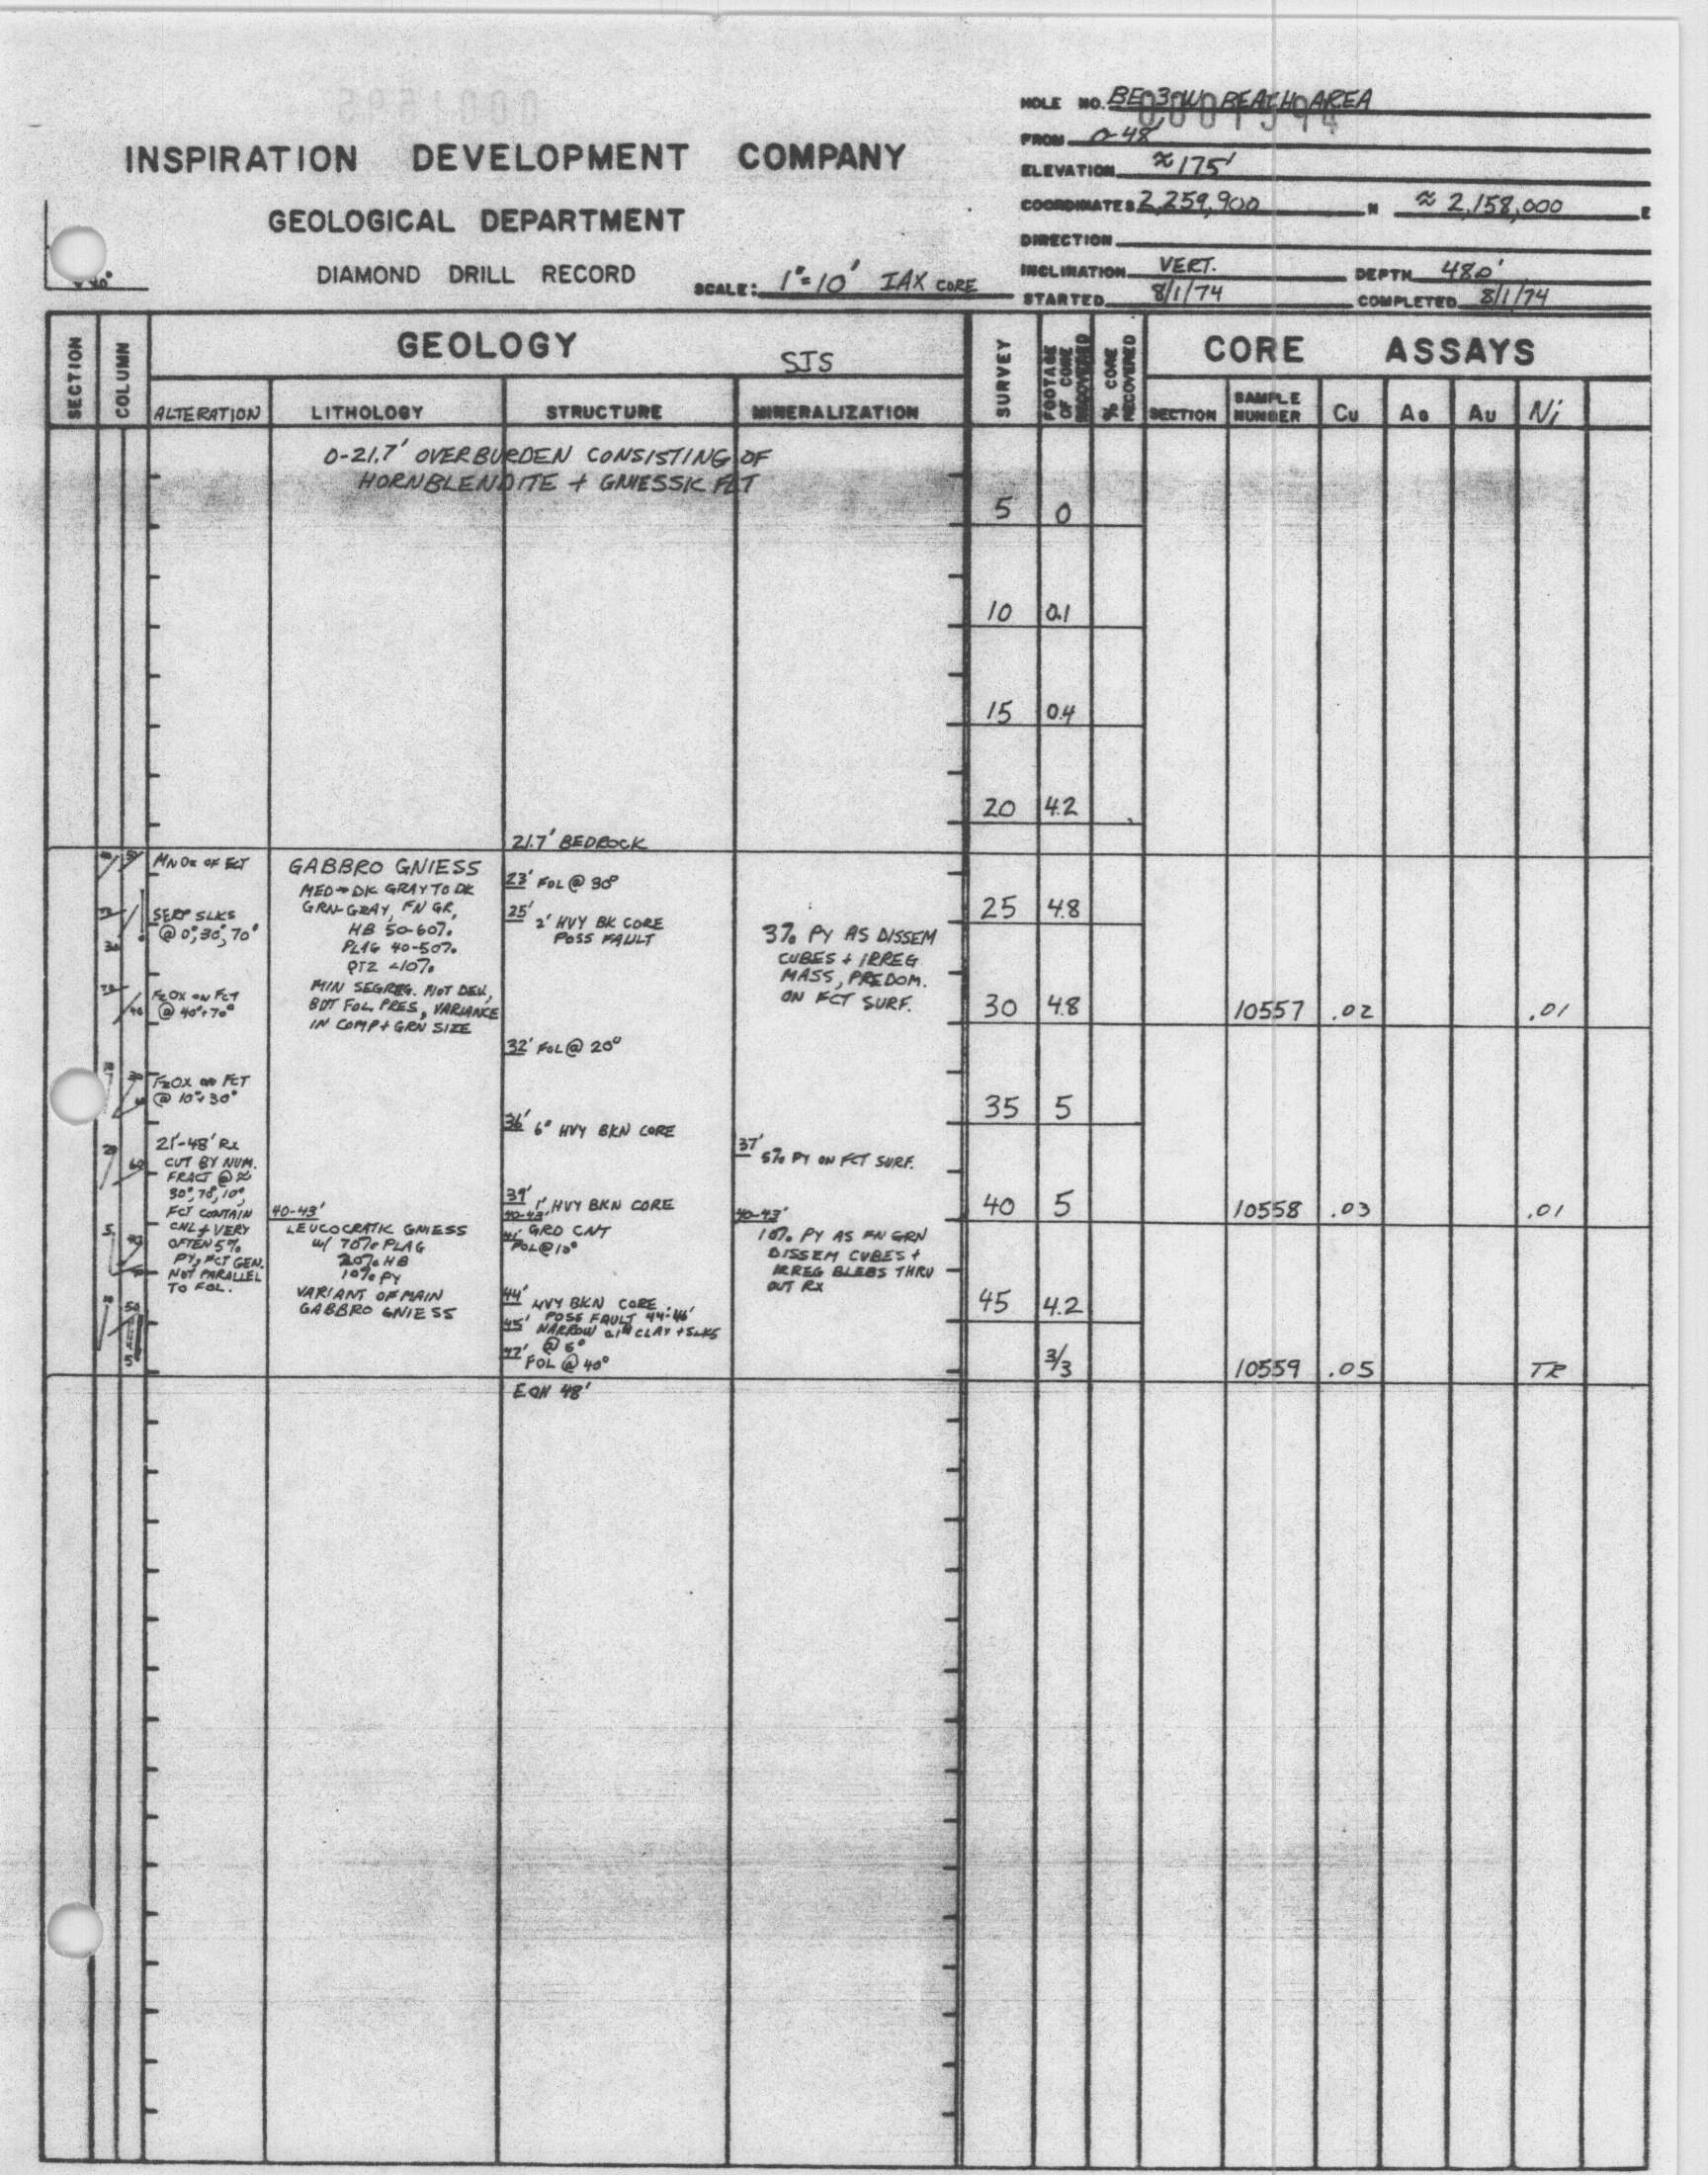 HOLE NO. BEATH AREA
FROM 0-48'
INSPIRATION DEVELOPMENT COMPANY
ELEVATION ≈175'
COORDINATES 2,259,900 N ≈ 2,158,000 E
GEOLOGICAL DEPARTMENT
DIRECTION
DIAMOND DRILL RECORD
SCALE: 1"=10' IAX CORE
INCLINATION VERT. DEPTH 480'
STARTED 8/1/74 COMPLETED 8/1/74
SECTION
COLUMN
GEOLOGY
SJS
SURVEY
FOOTAGE OF CORE RECOVERED
% CORE RECOVERED
CORE ASSAYS
ALTERATION LITHOLOGY STRUCTURE MINERALIZATION
SECTION SAMPLE NUMBER Cu AG AU Ni
0-21.7' OVERBURDEN CONSISTING OF
HORNBLENDITE + GNIESSIC FLT
5 0
10 0.1
15 0.4
20 4.2
21.7' BEDROCK
MN OX OF FCT
SERP SLKS
@ 0°, 30°, 70°
FE OX ON FCT
@ 40°+70°
FE OX ON FCT
@ 10°+30°
21'-48' RX
CUT BY NUM.
FRACT @ ≈
30°, 70°, 10°,
FCT CONTAIN
CHL + VERY
OFTEN 5%
PY, FCT GEN.
NOT PARALLEL
TO FOL.
GABBRO GNIESS
MED→DK GRAY TO DK
GRN-GRAY, FN GR,
HB 50-60%
PLAG 40-50%
QTZ <10%
MIN SEGREG. NOT DEV.,
BUT FOL. PRES, VARIANCE
IN COMP + GRN SIZE
40-43'
LEUCOCRATIC GNIESS
W/ 70% PLAG
20% HB
10% PY
VARIANT OF MAIN
GABBRO GNIESS
23' FOL @ 30°
25' 2' HVY BK CORE
POSS FAULT
32' FOL @ 20°
36' 6" HVY BKN CORE
39' 1' HVY BKN CORE
40-43'
GRD CNT
FOL @ 10°
44' HVY BKN CORE
POSS FAULT 44-46'
45' NARROW CLAY + SLKS
@ 6°
47' FOL @ 40°
EOH 48'
3% PY AS DISSEM
CUBES + IRREG
MASS, PREDOM.
ON FCT SURF.
37' 5% PY ON FCT SURF.
40-43'
10% PY AS FN GRN
DISSEM CUBES +
IRREG BLEBS THRU
OUT RX
25 4.8
30 4.8 10557 .02 .01
35 5
40 5 10558 .03 .01
45 4.2
3/3 10559 .05 TR